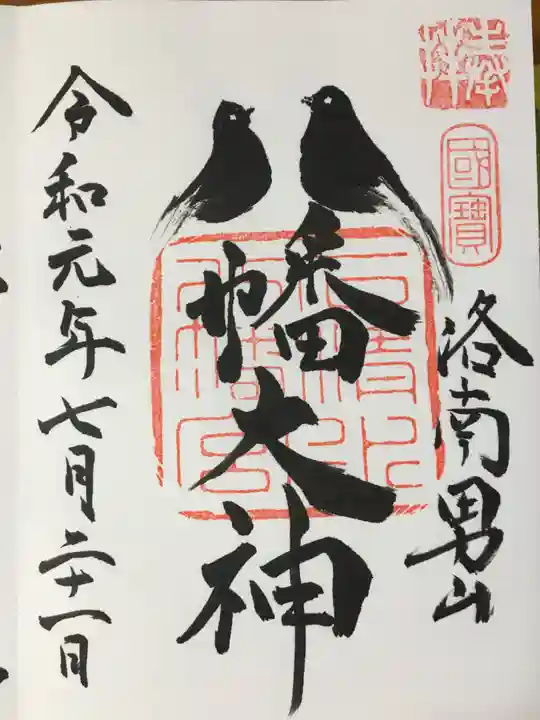 奉拝
國寶
洛南男山
幡大神
石清水八幡宮
令和元年七月二十一日